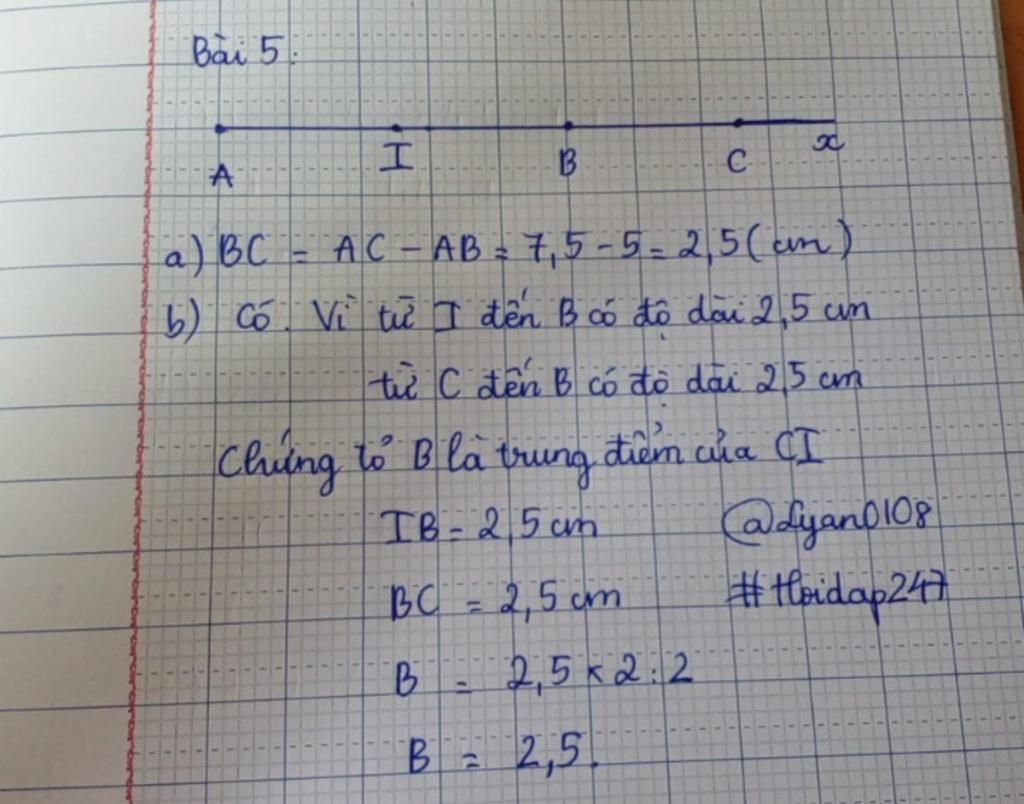 Bài 5:
A I B C x
a) BC = AC - AB = 7,5 - 5 = 2,5 (cm)
b) Có. Vì từ I đến B có độ dài 2,5 cm
từ C đến B có độ dài 2,5 cm
Chứng tỏ B là trung điểm của CI
IB = 2,5 cm @dyan0108
BC = 2,5 cm #Hoidap247
B = 2,5 x 2 : 2
B = 2,5.